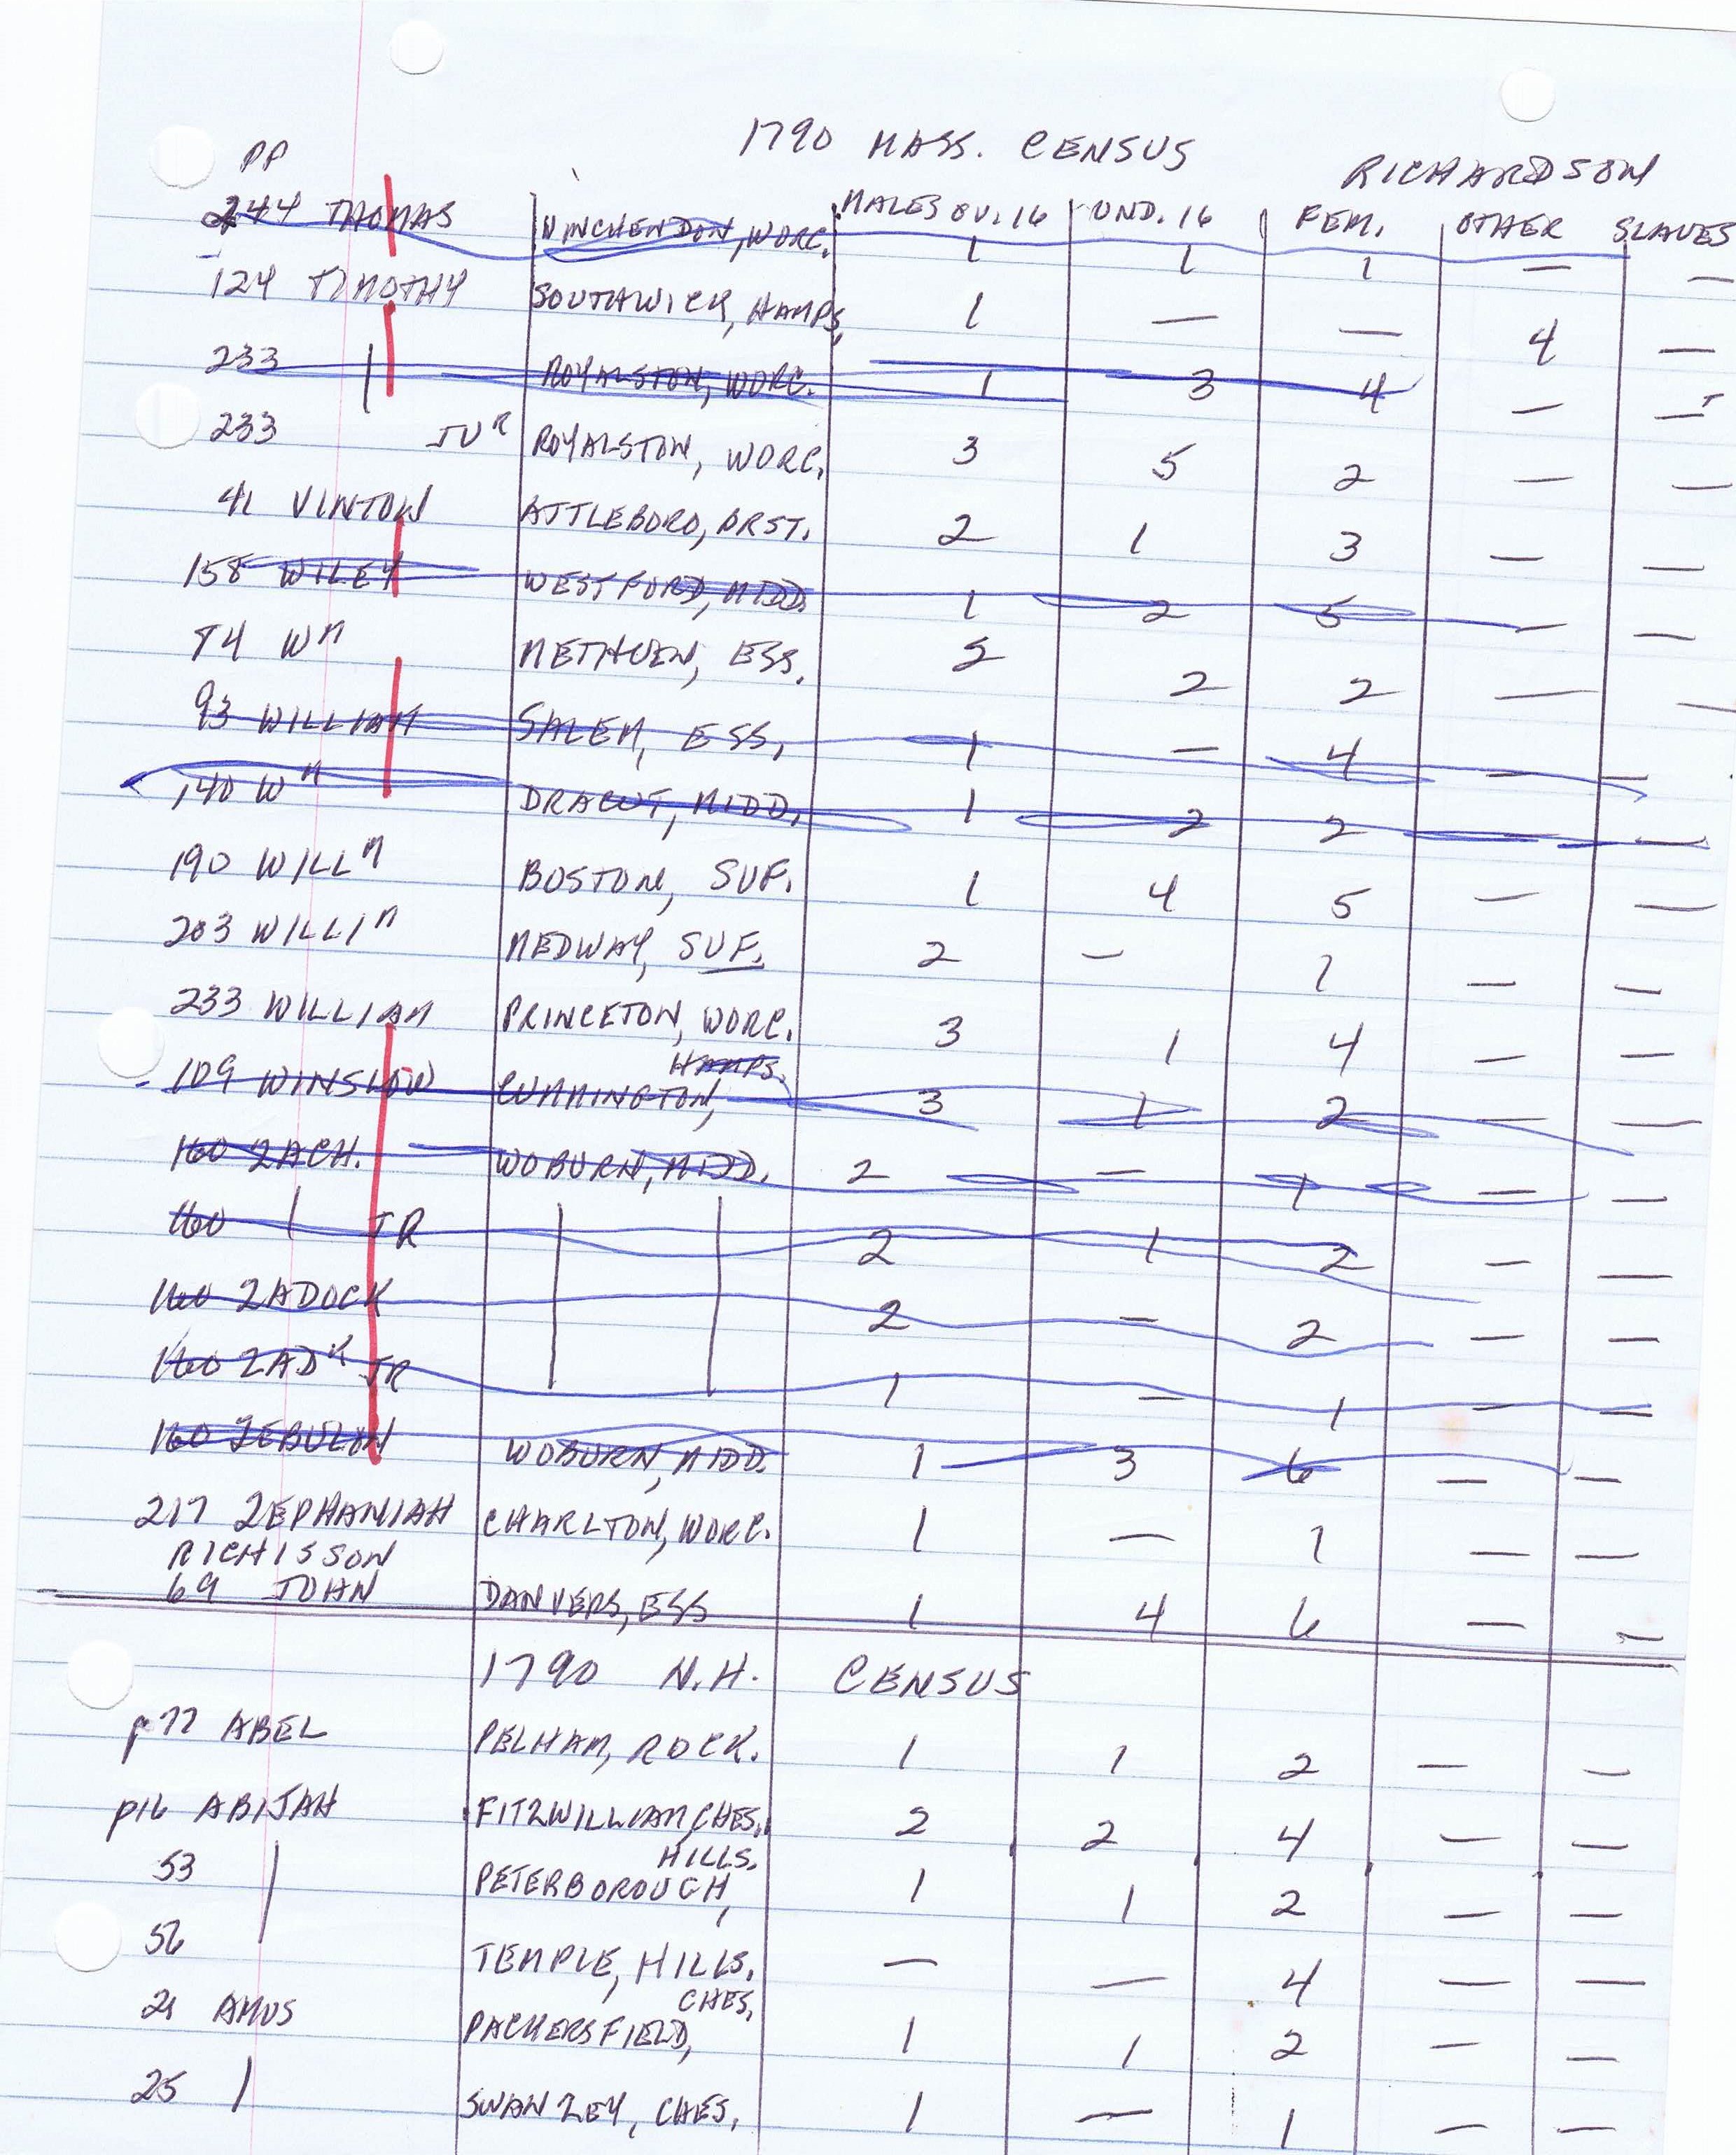 1790 MASS. CENSUS
RICHARDSON
PP MALES OV. 16 UND. 16 FEM. OTHER SLAVES
244 THOMAS WINCHENDON, WORC. 1 1 1 — —
124 TIMOTHY SOUTHWICK, HAMPS. 1 — — 4 —
233 | ROYALSTON, WORC. 1 3 4 — —
233 JUR ROYALSTON, WORC. 3 5 2 — —
41 VINTON ATTLEBORO, BRST. 2 1 3 — —
158 WILEY WESTFORD, MIDD. 1 2 5 — —
74 WM METHUEN, ESS. 2 2 2 — —
93 WILLIAM SALEM, ESS, 1 — 4 — —
140 WM DRACUT, MIDD, 1 2 2 — —
190 WILLM BOSTON, SUF. 1 4 5 — —
203 WILLIM MEDWAY, SUF. 2 — 1 — —
233 WILLIAM PRINCETON, WORC. 3 1 4 — —
HAMPS.
109 WINSLOW CUMMINGTON, 3 1 2 — —
160 ZACH. WOBURN, MIDD. 2 — 1 — —
160 | JR | | 2 1 2 — —
160 ZADOCK 2 — 2 — —
160 ZADK JR 1 — 1 — —
160 ZEBULON WOBURN, MIDD. 1 3 6 — —
217 ZEPHANIAH CHARLTON, WORC. 1 — 1 — —
RICHISSON
69 JOHN DANVERS, ESS 1 4 6 — —
1790 N.H. CENSUS
p77 ABEL PELHAM, ROCK. 1 1 2 — —
p16 ABIJAH FITZWILLIAM, CHES. 2 2 4 — —
HILLS.
53 | PETERBOROUGH, 1 1 2 — —
56 TEMPLE, HILLS. — — 4 — —
CHES.
21 AMOS PACKERSFIELD, 1 1 2 — —
25 | SWANZEY, CHES. 1 — 1 — —